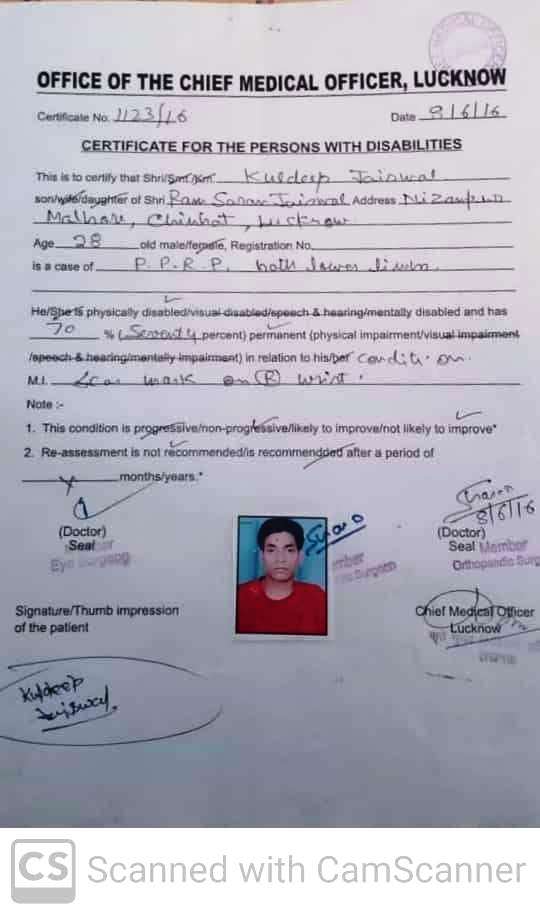 OFFICE OF THE CHIEF MEDICAL OFFICER, LUCKNOW
Certificate No. 1123/16 Date 8/6/16
CERTIFICATE FOR THE PERSONS WITH DISABILITIES
This is to certify that Shri/Smt/Km. Kuldeep Jaiswal
son/wife/daughter of Shri Ram Saran Jaiswal Address Nizampur
Malhaur, Chinhat, Lucknow
Age 28 old male/female, Registration No.
is a case of P.P.R.P. both lower limb.
He/She is physically disabled/visual disabled/speech & hearing/mentally disabled and has
70 % (Seventy percent) permanent (physical impairment/visual impairment
/speech & hearing/mentally impairment) in relation to his/her condition.
M.I. Scar mark on (R) wrist.
Note :-
1. This condition is progressive/non-progressive/likely to improve/not likely to improve*
2. Re-assessment is not recommended/is recommended after a period of
months/years.*
8/6/16
(Doctor) (Doctor)
Seal Seal Member
Eye Surgeon Orthopaedic Surg
Signature/Thumb impression Chief Medical Officer
of the patient Lucknow
Kuldeep
Jaiswal
CS Scanned with CamScanner